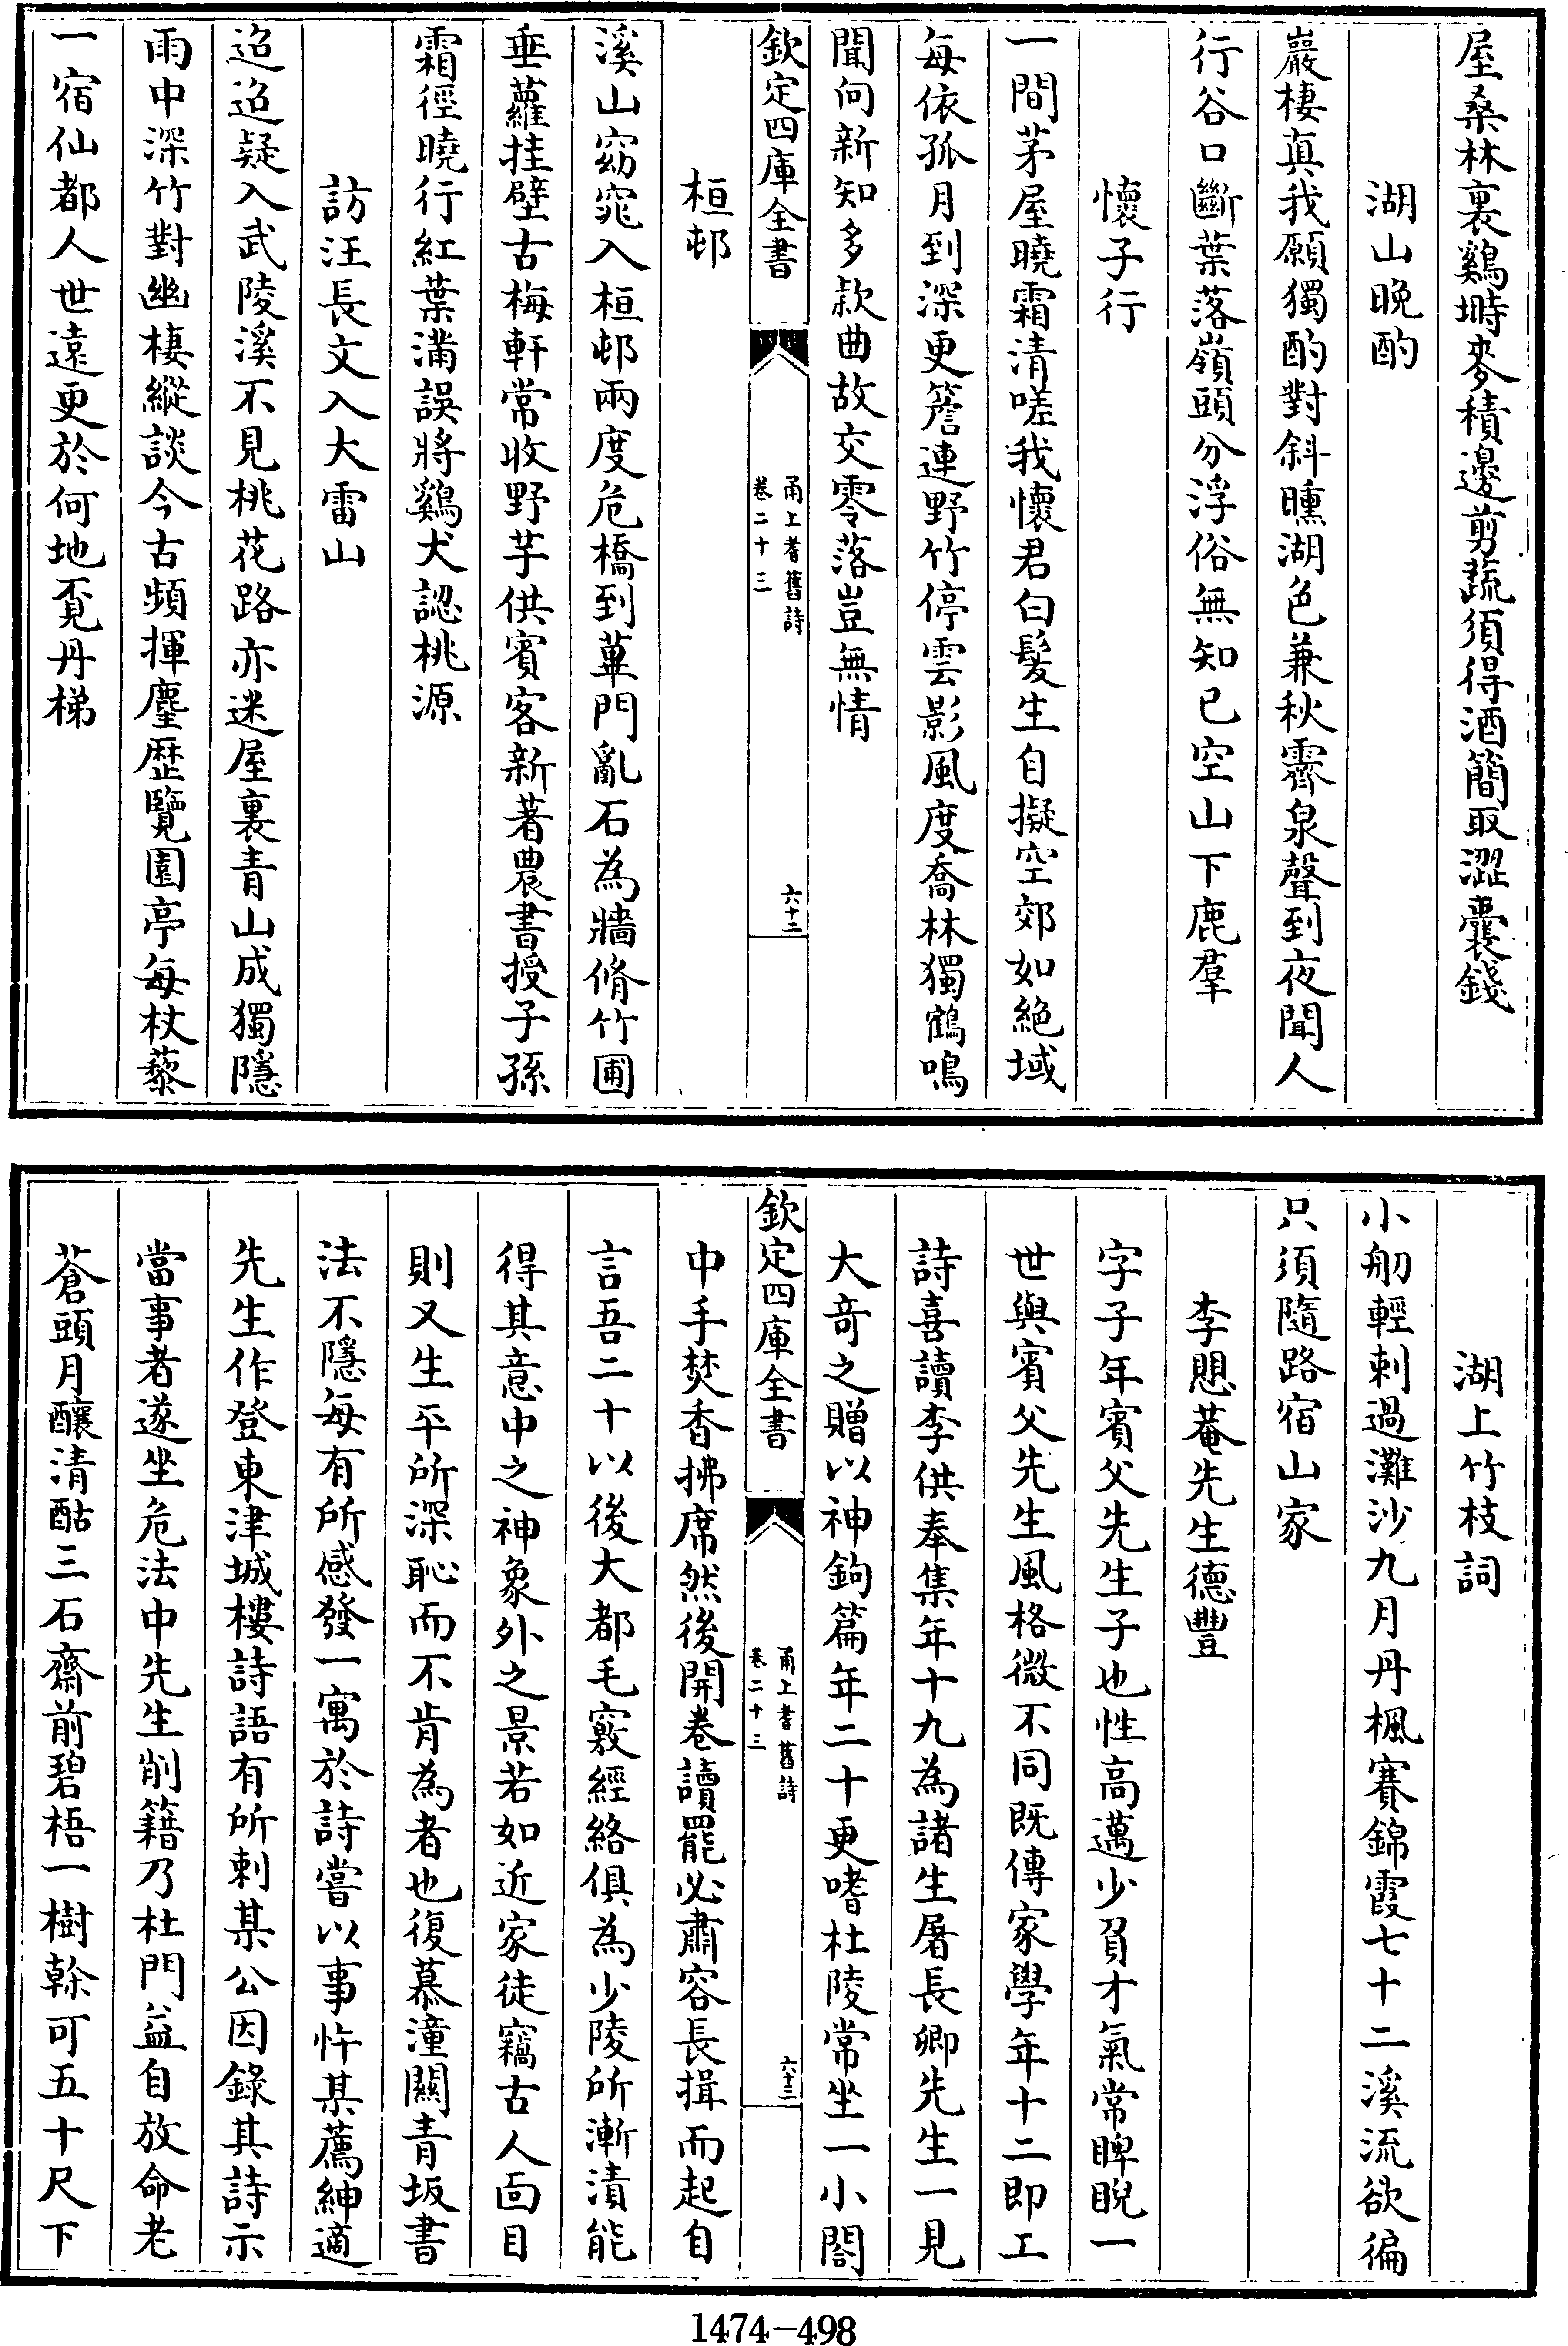 屋桑林裏鷄塒麥積邊剪蔬須得酒簡取澀囊錢
湖山晩酌
巖棲真我願獨酌對斜曛湖色兼秋霽泉聲到夜聞人
行谷口斷葉落嶺頭分浮俗無知已空山下鹿羣
懷子行
一間茅屋曉霜清嗟我懷君白髮生自擬空郊如絶域
每依孤月到深更簷連野竹停雲影風度喬林獨鶴鳴
聞向新知多款曲故交零落豈無情
欽定四庫全書
甬上耆舊詩
卷二十三
六十二
桓邨
溪山窈窕入桓邨兩度危橋到蓽門亂石為牆脩竹圃
垂蘿挂壁古梅軒常收野芋供賓客新著農書授子孫
霜徑曉行紅葉滿誤將鷄犬認桃源
訪汪長文入大雷山
迢迢疑入武陵溪不見桃花路亦迷屋裏青山成獨隱
雨中深竹對幽棲縱談今古頻揮麈歴覽園亭每杖藜
一宿仙都人世遠更於何地覔丹梯
湖上竹枝詞
小舠輕刺過灘沙九月丹楓賽錦霞七十二溪流欲徧
只須隨路宿山家
李愳菴先生德豐
字子年賓父先生子也性高邁少負才氣常睥睨一
世與賓父先生風格微不同既傳家學年十二即工
詩喜讀李供奉集年十九為諸生屠長卿先生一見
大竒之贈以神鉤篇年二十更嗜杜陵常坐一小閣
欽定四庫全書
甬上耆舊詩
卷二十三
六十三
中手焚香拂席然後開卷讀罷必肅容長揖而起自
言吾二十以後大都毛竅經絡俱為少陵所漸漬能
得其意中之神象外之景若如近家徒竊古人面目
則又生平所深恥而不肯為者也復慕潼關青坂書
法不隱每有所感發一寓於詩嘗以事忤某薦紳適
先生作登東津城樓詩語有所刺某公因錄其詩示
當事者遂坐危法中先生削籍乃杜門益自放命老
蒼頭月釀清酤三石齋前碧梧一樹榦可五十尺下
1474-498